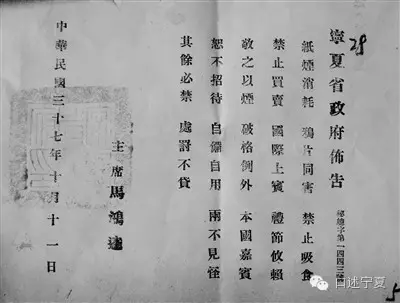 寧夏省政府佈告
秘總字第一四四三號
紙煙消耗 鴉片同害 禁止吸食
禁止買賣 國際上賓 禮節攸賴
敬之以煙 破格例外 本國嘉賓
恕不招待 自備自用 兩不見怪
其餘必禁 處罰不貸
主席 馬鴻逵
中華民國三十七年十月十一日
口述宁夏